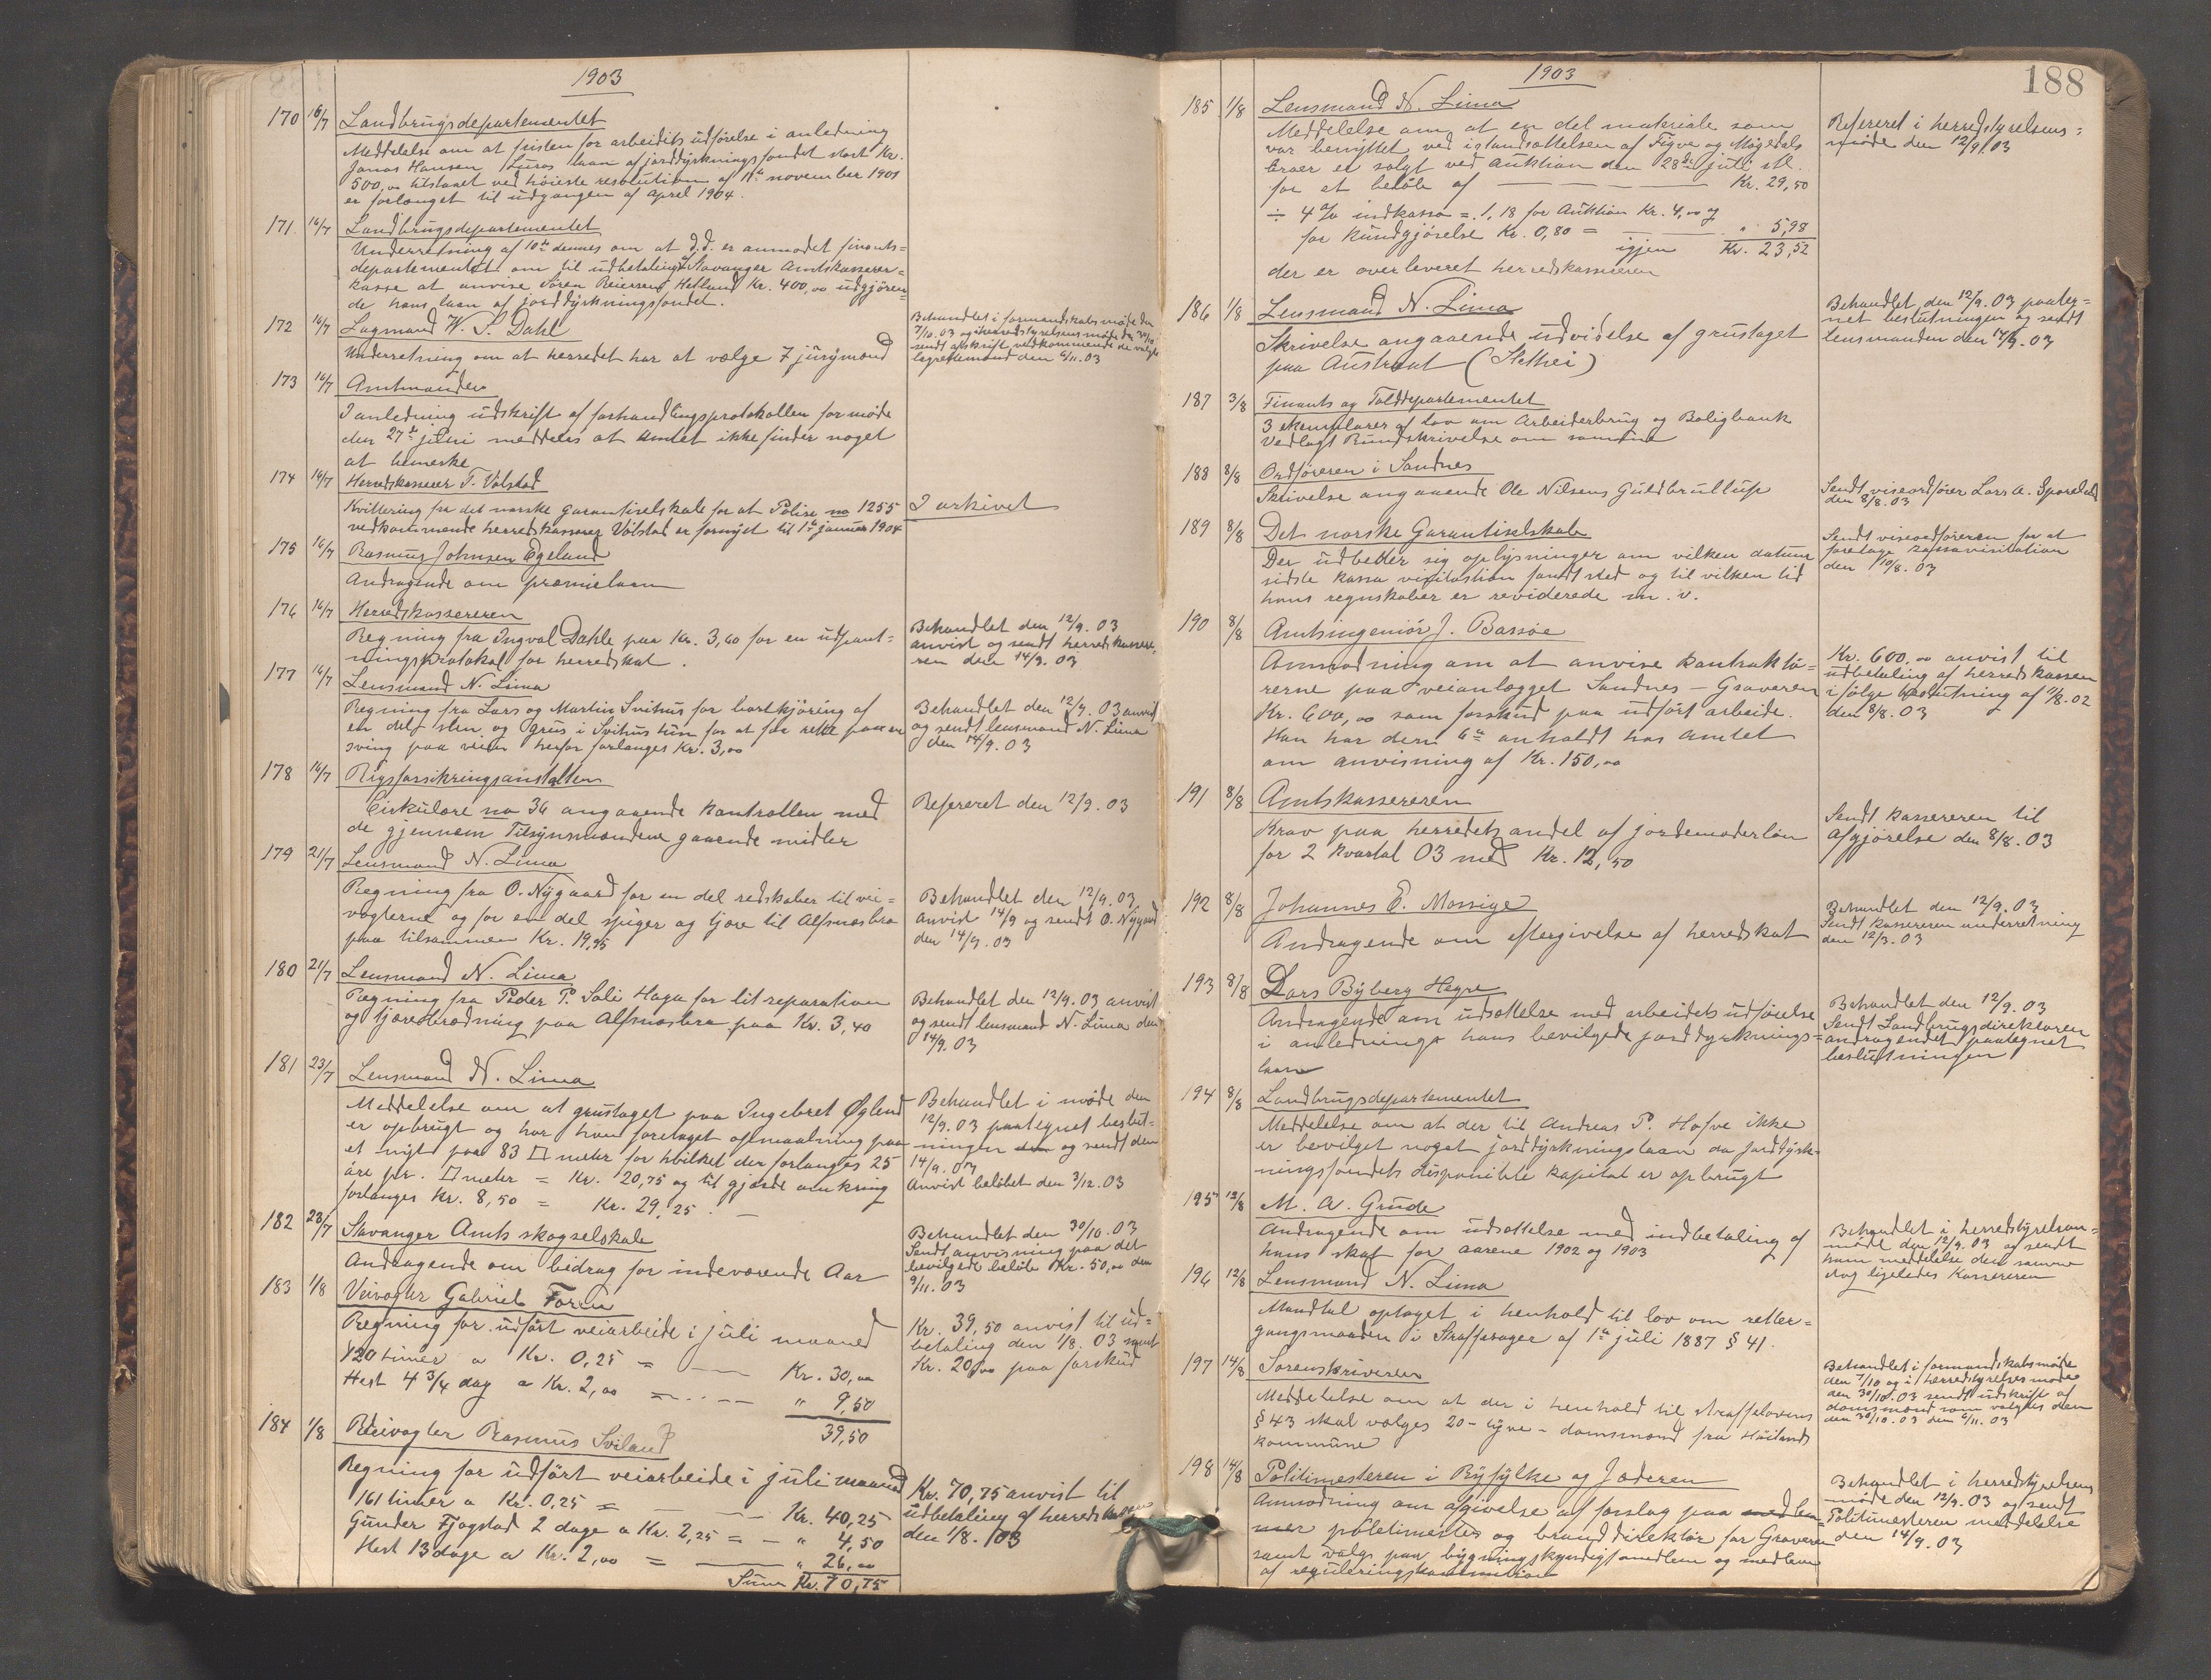 1903
170 16/7 Landbrugsdepartementet
Meddelelse om at fristen for arbeidets udførelse i anledning
Jonas Hansen Luras laan af jorddyrkningsfondet stort Kr.
500,00 tilstaaet ved høieste resolution af 11te november 1901
er forlænget til udgangen af april 1904.
171. 16/7 Landbrugsdepartementet
Underretning af 10de dennes om at d.d. er anmodet finants=
departementet om til udbetaling Stavanger Amtskasserer=
kasse at anvise Søren Reiersen Hetland Kr. 400,00 udgjøren=
de hans laan af jorddyrkningsfondet.
172 16/7 Lagmand W. S. Dahl
Underretning om at herredet har at vælge 7 jurymænd
Behandlet i formandskabsmøde den
7/10. 03 og i herredstyrelsens møde den 30/10
sendt afskrift vedkommende de valgte
lagrettemænd den 6/11. 03
173 16/7 Amtmanden
I anledning udskrift af forhandlingsprotokollen for møde
den 27de juni meddeles at Amtet ikke finder noget
at bemerke
174 16/7 Herredskasserer T. Volstad
Kvittering fra det norske garantiselskab for at Polise no 1255
vedkommende herredskasserer Volstad er fornyet til 1ste januar 1904
I arkivet
175 16/7 Rasmus Johnsen Egeland
Andragende om præmielaan
176 16/7 Herredskassereren
Regning fra Ingval Dahle paa Kr. 3,60 for en udpant=
ningsprotokol for herredskat.
Behandlet den 12/9. 03
anvist og sendt herredskassere=
ren den 14/9. 03
177 16/7 Lensmand N. Lima
Regning fra Lars og Martin Svihus for bortkjøring af
en del sten og grus i Svihus tun for at faa rette paa en
sving paa veien herfor forlanges Kr. 3,00
Behandlet den 12/9. 03 anvist
og sendt lensmand N. Lima
den 14/9. 03
178 16/7 Rigsforsikringsanstalten
Cirkulære no 36 angaaende kontrollen med
de gjennem Tilsynsmændene gaaende midler
Refereret den 12/9. 03
179 21/7 Lensmand N. Lima
Regning fra O. Nygaard for en del redskaber til vei=
vogterne og for en del spiger og tjære til Alfsnæsbro
paa tilsammen Kr. 19,95
Behandlet den 12/9. 03
anvist 14/9 og sendt O. Nygaard
den 14/9. 03
180 21/7 Lensmand N. Lima
Regning fra Peder P. Soli Haga for lit reparation
og tjærebrædning paa Alfsnæsbro paa Kr. 3,40
Behandlet den 12/9. 03 anvist
og sendt lensmand N. Lima den
14/9. 03
181 23/7 Lensmand N. Lima
Meddelelse om at grustaget paa Ingebret Øglend
er opbrugt og har han foretaget opmaalning paa
et nyt paa 83 □ meter for hvilket der forlanges 25
øre pr. □ meter = Kr. 20,75 og til gjærde omkring
forlanges Kr. 8,50 = Kr. 29,25.
Behandlet i møde den
12/9. 03 paategnet beslut-
ningen den og sendt den
14/9. 03
Anvist beløbet den 3/12. 03
182 28/7 Stavanger Amts skogselskab
Andragende om bidrag for indeværende Aar
Behandlet den 30/10. 03
Sendt anvisning paa det
bevilgede beløb Kr. 50,00 den
9/11. 03
183 1/8 Veivogter Gabriel Forus
Regning for udført veiarbeide i juli maaned
120 timer a Kr. 0,25 = Kr. 30,00
Hest 4 3/4 dag a Kr. 2,00 = " 9,50
39,50
Kr. 39,50 anvist til ud=
betaling den 1/8. 03 samt
Kr. 20,00 paa forskud
184 1/8 Veivogter Rasmus Sviland
Regning for udført veiarbeide i juli maaned
161 timer a Kr. 0,25 = Kr. 40,25
Gunder Fjogstad 2 dage a Kr. 2,25 = " 4,50
Hest 13 dage a Kr. 2,00 = " 26,00
Sum Kr. 70,75
Kr. 70,75 anvist til
udbetaling af herredskassen
den 1/8. 03
1903
188
185 1/8 Lensmand N. Lima
Meddelelse om at en del materiale som
var benyttet ved istandsættelsen af Figve og Møgedals
broer er solgt ved auktion den 28de juli
for et beløb af Kr. 29,50
÷ 4 % indkasso = 1,18 for Auktion Kr. 4,00 og
for kundgjørelse Kr. 0,80 = " 5,98
igjen Kr. 23,52
der er overleveret herredskassereren
Refereret i herredstyrelsens=
møde den 12/9. 03
186 1/8 Lensmand N. Lima
Skrivelse angaaende udvidelse af grustaget
paa Austraat (Slethei)
Behandlet den 12/9. 03 paateg=
net beslutningen og sendt
lensmanden den 14/9. 03
187 3/8 Finants og Tolddepartementet
3 eksemplarer af lov om Arbeiderbrug og Boligbank
Vedlagt Rundskrivelse om samme
188 8/8 Ordføreren i Sandnes
Skrivelse angaaende Ole Nilsens Guldbrullup
Sendt viseordfører Lars A. Sporeland
den 8/8. 03
189 8/8 Det norske Garantiselskab
Der udbeder sig oplysninger om vilken datum
sidste kassa visitastion fandt sted og til vilken tid
hans regnskaber er reviderede m. v.
Sendt viseordføreren for at
foretage kassavisitation
den 10/8. 03
190 8/8 Amtsingeniør J. Bassøe
Anmodning om at anvise kontraktø=
rerne paa veianlægget Sandnes – Graveren
Kr. 600,00 som forskud paa udført arbeide.
Han har den 6te anholdt hos Amtet
om anvisning af Kr. 150,00
Kr. 600,00 anvist til
udbetaling af herredskassen
i følge beslutning af 11/8. 02
den 8/8. 03
191 8/8 Amtskassereren
Krav paa herredets andel af jordemoderløn
for 2 kvartal 03 med Kr. 12,50
Sendt kassereren til
afgjørelse den 8/8. 03
192 8/8 Johannes E. Mossige
Andragende om eftergivelse af herredskat
Behandlet den 12/9. 03
Sendt kassereren underretning
den 12/9. 03
193 8/8 Lars Byberg Hegre
Andragende om udsættelse med arbeidets udførelse
i anledning hans bevilgede jorddyrknings=
laan
Behandlet den 12/9. 03
Sendt Landbrugsdirektøren
andragendet paategnet
beslutningen
194 8/8 Landbrugsdepartementet
Meddelelse om at der til Andreas P. Hofve ikke
er bevilget noget jorddyrkningslaan da jorddyrk=
ningsfondets disponible kapital er opbrugt
195 12/8 M. A. Grude
Andragende om udsættelse med indbetaling af
hans skat for aarene 1902 og 1903
Behandlet i herredstyrelsen=
møde den 12/9. 03 og sendt
ham meddelelse den samme
dag ligeledes Kassereren
196 12/8 Lensmand N. Lima
Mandtal optaget i henhold til lov om retter=
gangsmaaden i Straffesager af 1ste juli 1887 § 41.
197 14/8 Sorenskriveren
Meddelelse om at der i henhold til straffelovens
§ 43 skal vælges 20 – tyve – domsmænd fra Høilands
kommune
Behandlet i formandskabsmøde
den 7/10 og i herredstyrelses møde
den 30/10. 03 sendt udskrift af
domsmænd som valgtes den
30/10. 03 den 6/11. 03
198 14/8 Politimesteren i Ryfylke og Jæderen
Anmodning om afgivelse af forslag paa medlem=
mer politimester og branddirektør for Graveren
samt valg paa bygningskyndig medlem og medlem
af reguleringskommission
Behandlet i herredstyrelsens
møde den 12/9. 03 og sendt
Politimesteren meddelelse
den 14/9. 03